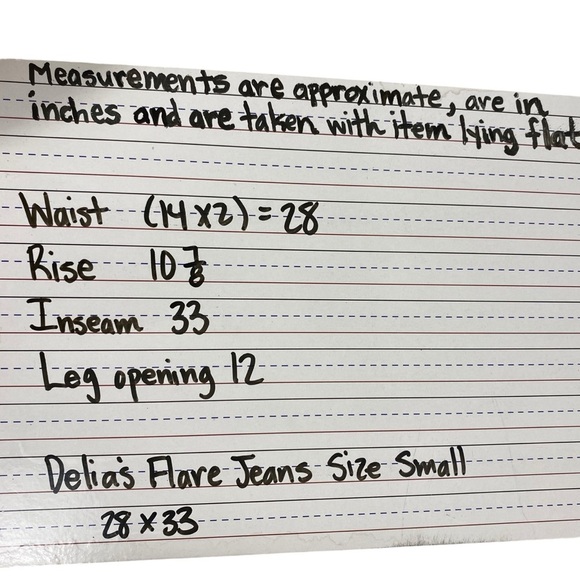 Measurements are approximate, are in
inches and are taken with item lying flat
Waist (14x2) = 28
Rise 10 7/8
Inseam 33
Leg opening 12
Delia's Flare Jeans Size Small
28 x 33